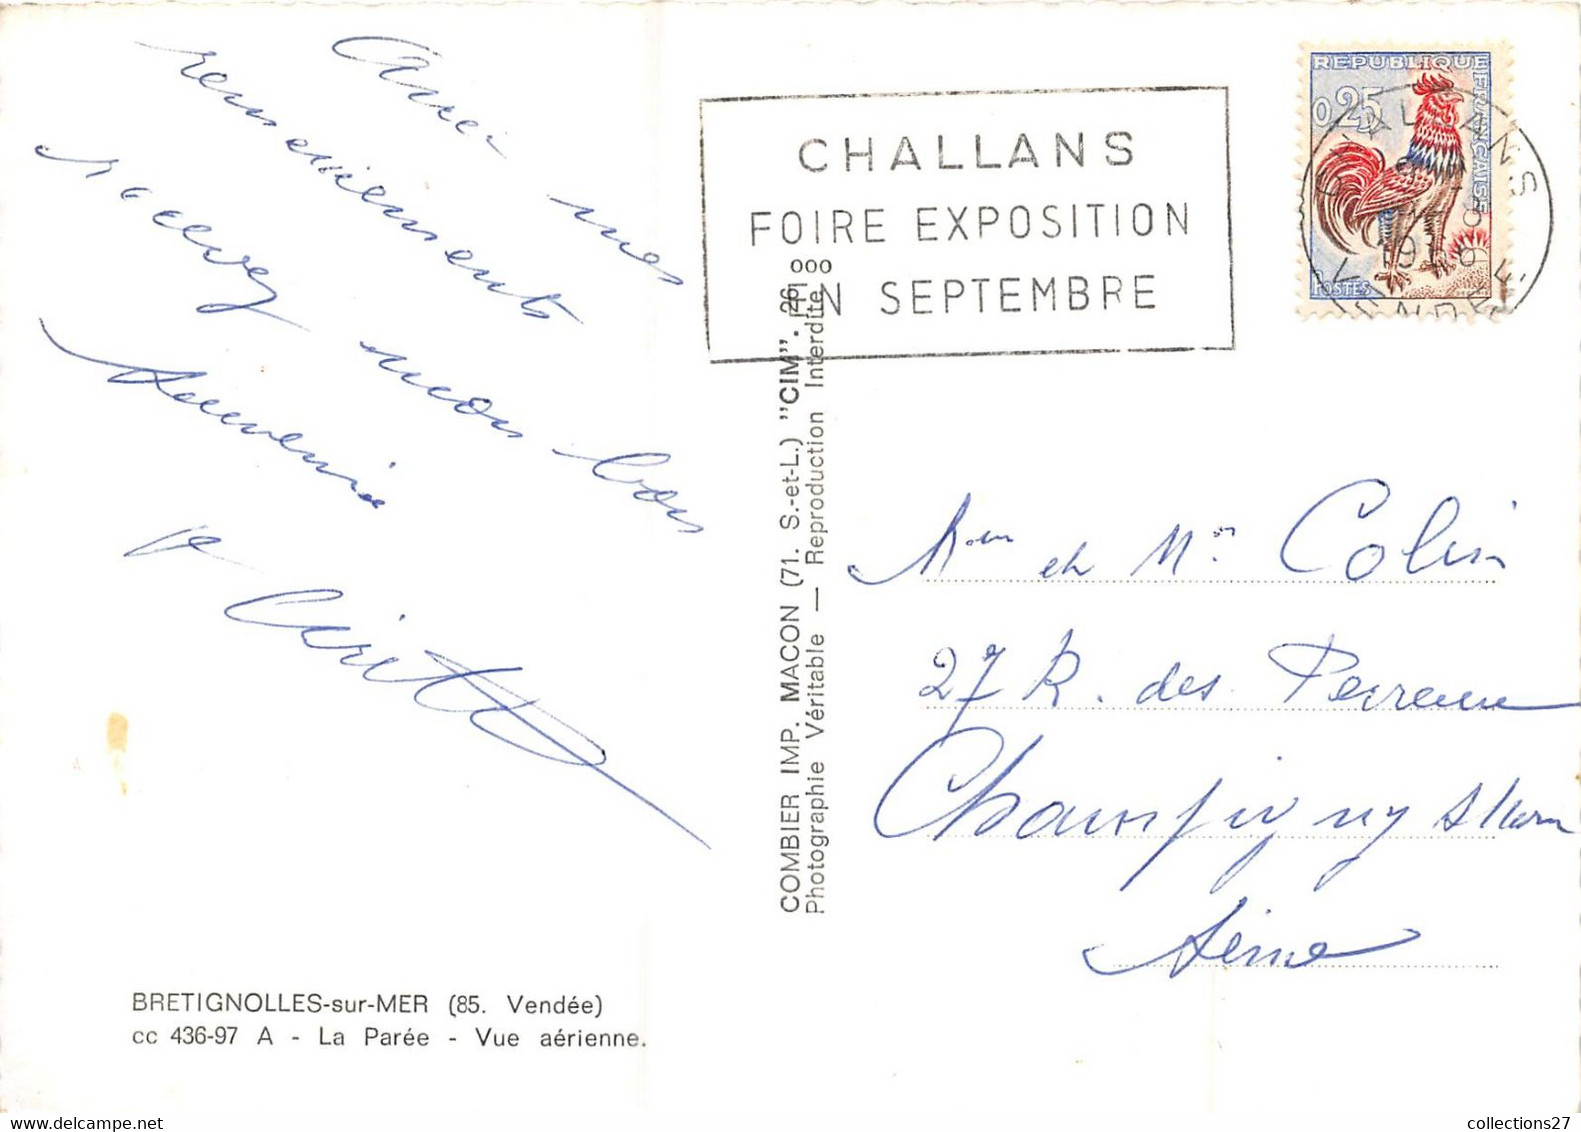 Avec mes
remerciements
recevez mon bon
souvenir
CHALLANS
FOIRE EXPOSITION
EN SEPTEMBRE
REPUBLIQUE FRANÇAISE
0,25
POSTES
CHALLANS
VENDEE
COMBIER IMP. MACON (71. S.-et-L.) "CIM". 26 000
Photographie Véritable — Reproduction Interdite
Mme et Mr Colin
27 R. des Perreux
Champigny s/Marn
Seine
BRETIGNOLLES-sur-MER (85. Vendée)
cc 436-97 A - La Parée - Vue aérienne.
collections27